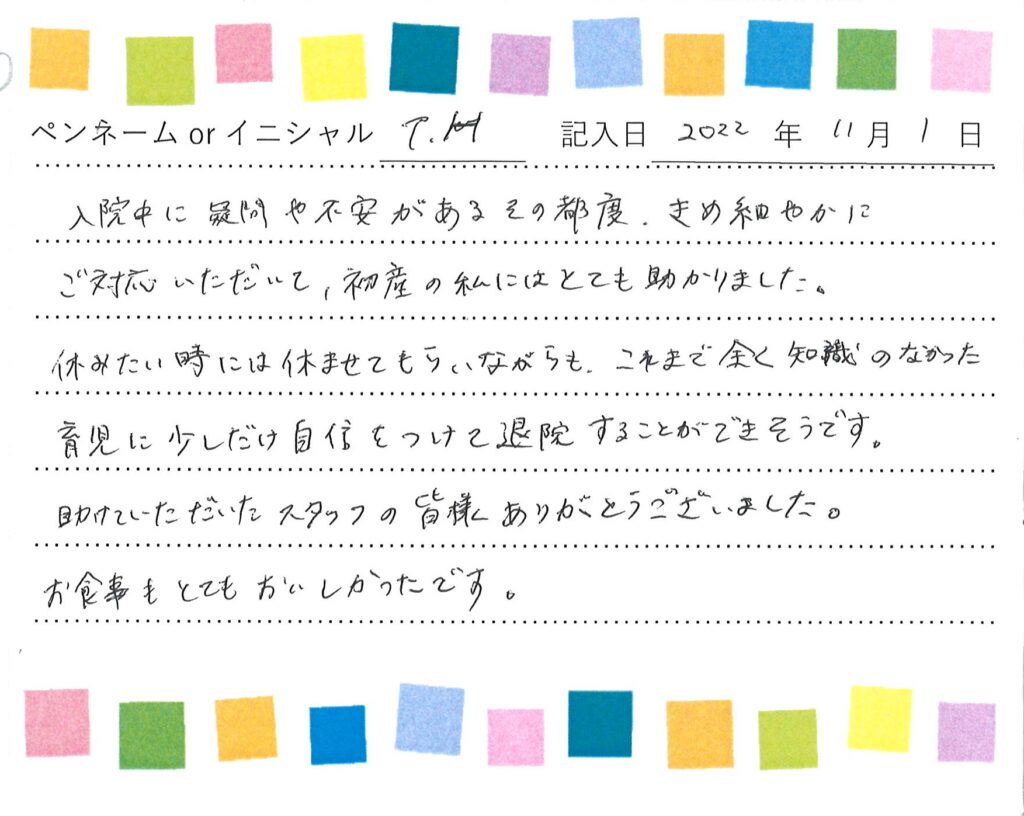 ペンネーム or イニシャル T.M 記入日 2022 年 11 月 1 日
入院中に疑問や不安があるその都度、きめ細やかに
ご対応いただいて、初産の私にはとても助かりました。
休みたい時には休ませてもらいながらも、これまで全く知識のなかった
育児に少しだけ自信をつけて退院することができそうです。
助けていただいたスタッフの皆様ありがとうございました。
お食事もとてもおいしかったです。